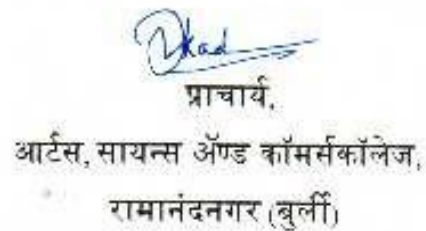 प्राचार्य,
आर्टस, सायन्स ॲण्ड कॉमर्सकॉलेज,
रामानंदनगर (बुर्ली)